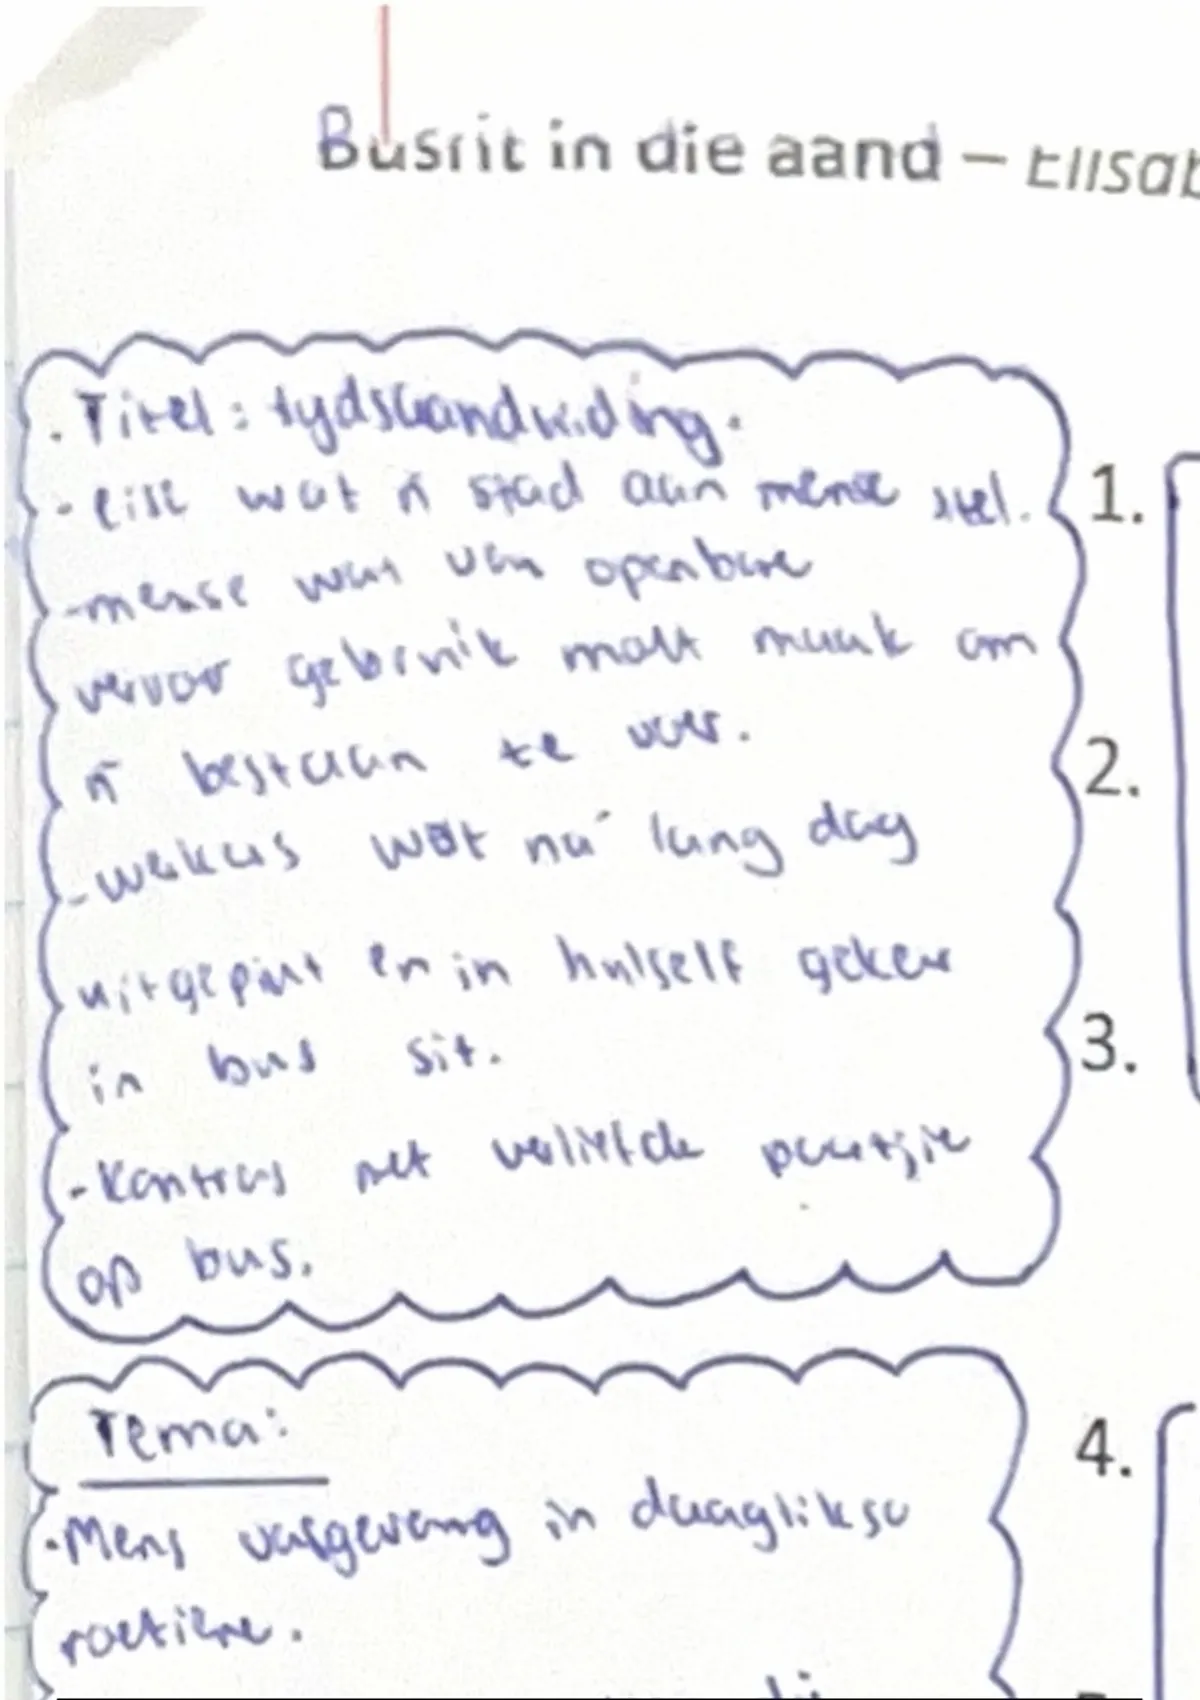 Busrit in die aand – Elisab
• Titel: tydsaanduiding.
- eise wat 'n stad aan mense stel.
1.
- mense wat van openbare
vervoer gebruik moet maak om
'n bestaan te voer.
2.
- werkers wat ná lang dag
uitgeput en in hulself gekeer
in bus sit.
3.
- Kontras met verliefde paartjie
op bus.
Tema:
4.
• Mens vasgevang in daaglikse
roetine.